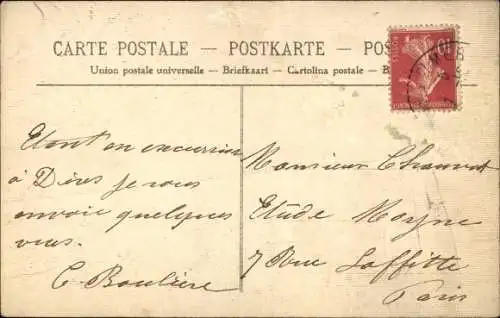 CARTE POSTALE — POSTKARTE — POS
Union postale universelle — Briefkaart — Cartolina postale — B
Etant en excursion
à je vous
envoie quelques
vues.
C. Boulière
Monsieur Chauvot
Etude Moyne
7 Rue Laffitte
Paris